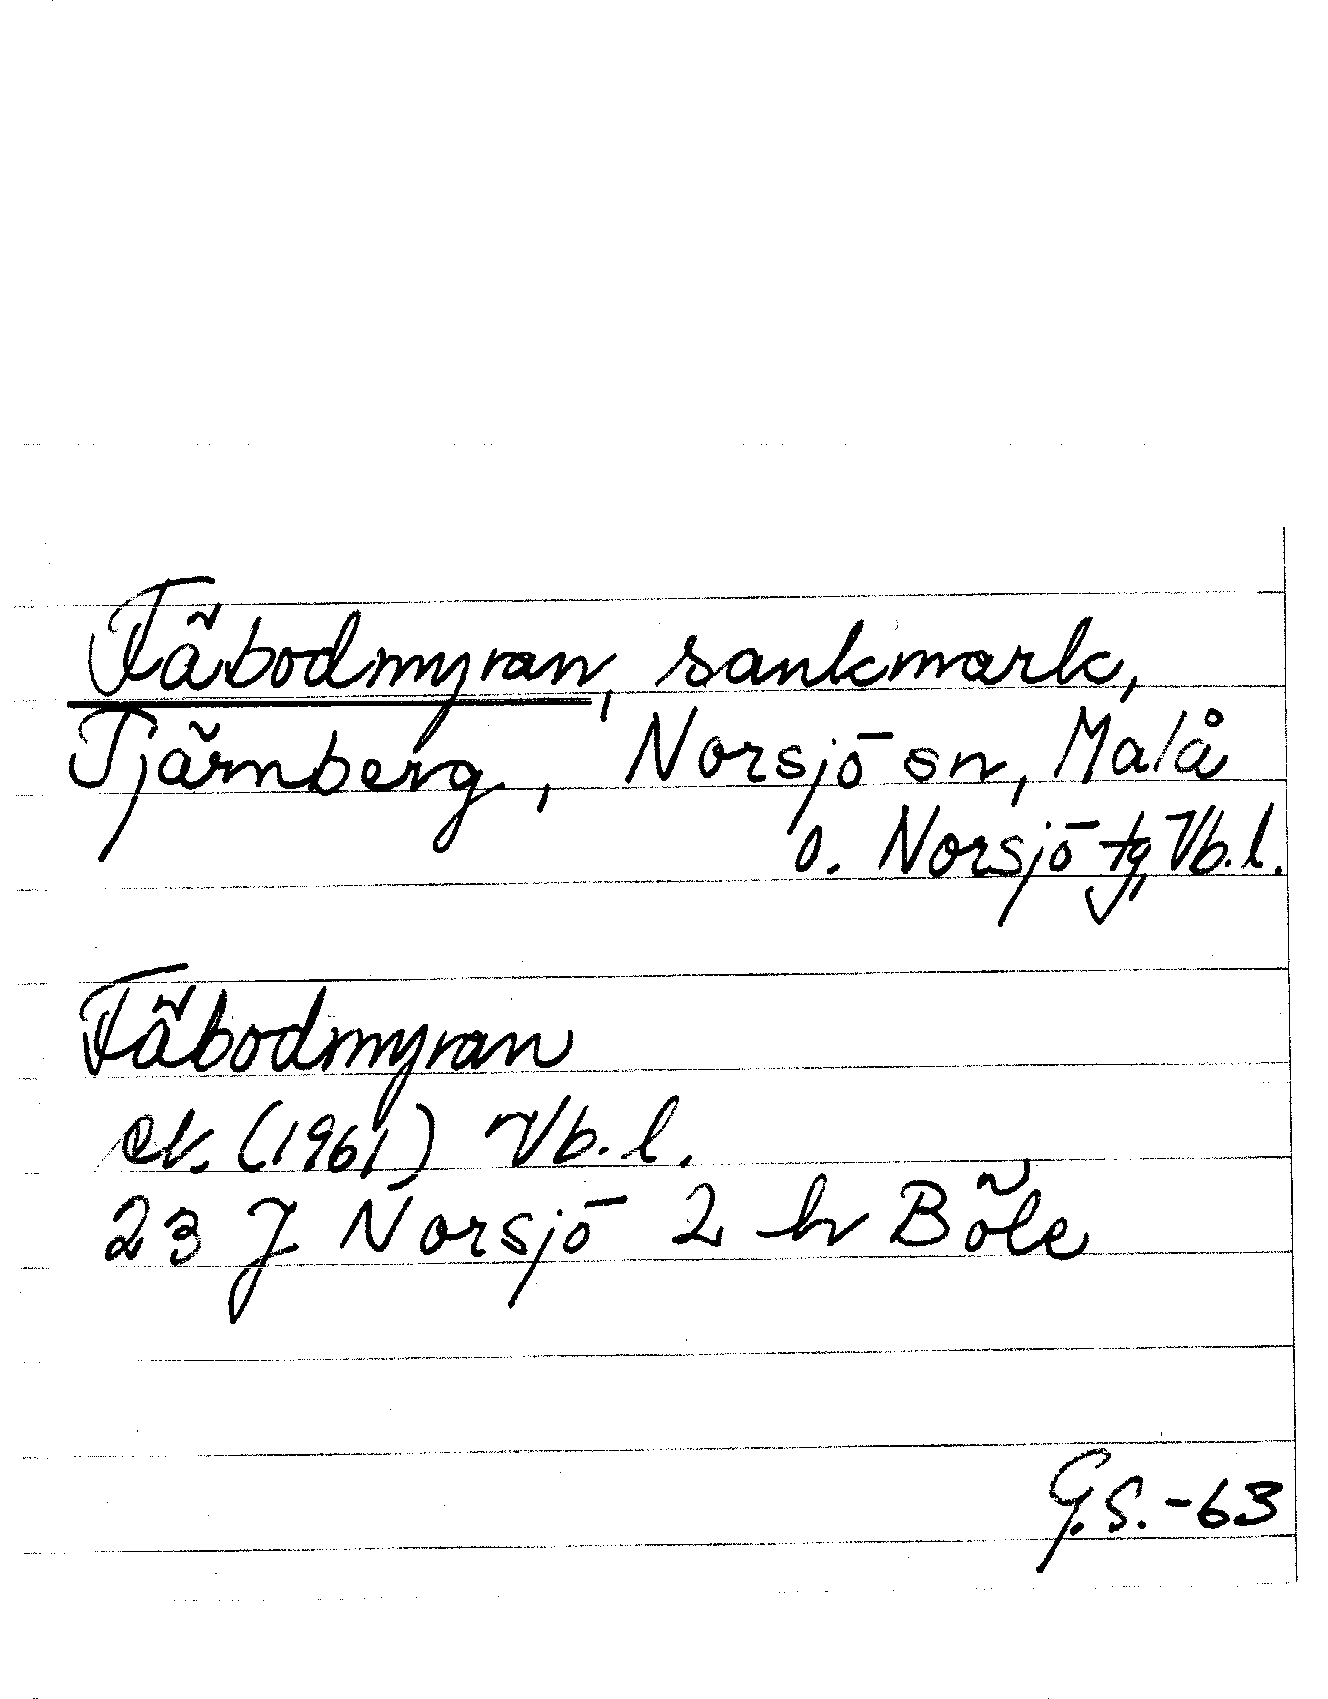 Fäbodmyran, sankmark,
Tjärnberg, Norsjö sn, Malå
o. Norsjö tg, Vb.l.
Fäbodmyran
ek. (1961) Vb.l.
23 J Norsjö 2 h Böle
G.S. -63